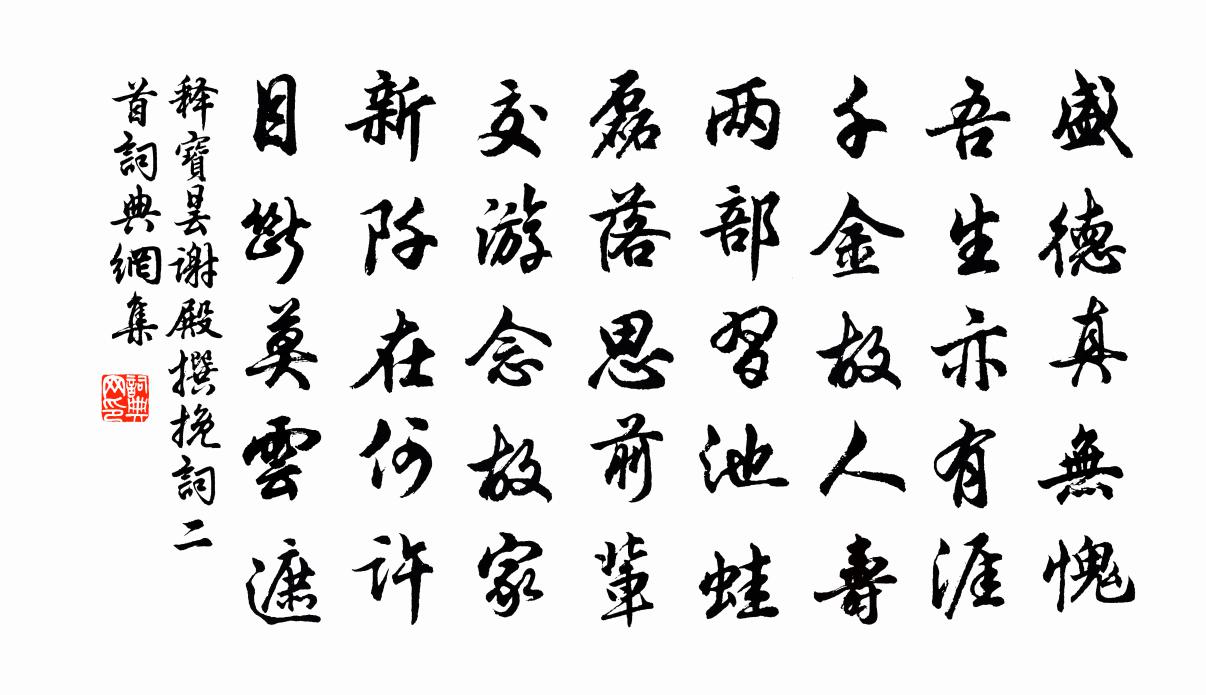 盛德真無愧
吾生亦有涯
千金故人壽
两部習池蛙
磊落思前輩
交游念故家
新阡在何許
目斷莫雲遮
釋寶曇謝殿撰挽詞二
首詞典網集
詞典网印